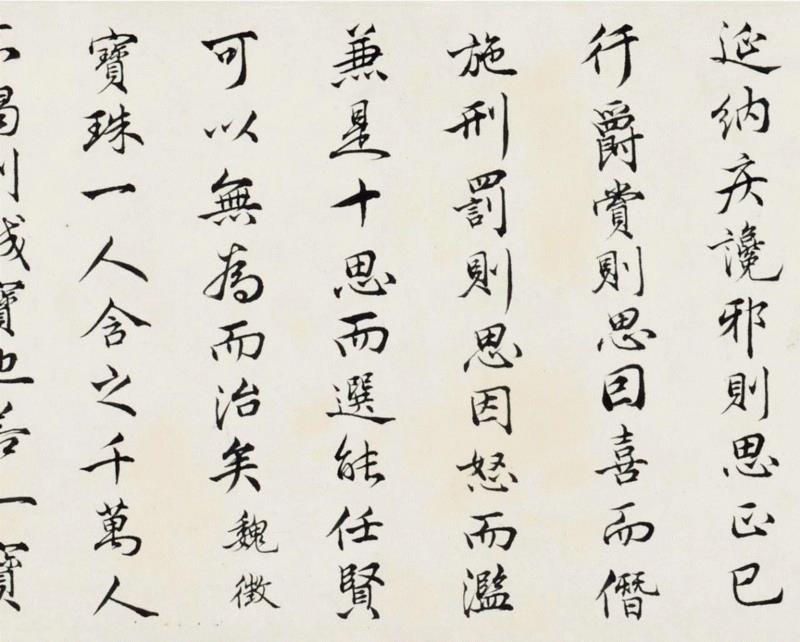 延纳疾讒邪則思正已
行爵賞則思因喜而僭
施刑罰則思因怒而濫
兼是十思而選能任賢
可以無為而治矣魏徵
寳珠一人含之千萬人
不竭則成寳也善一寳